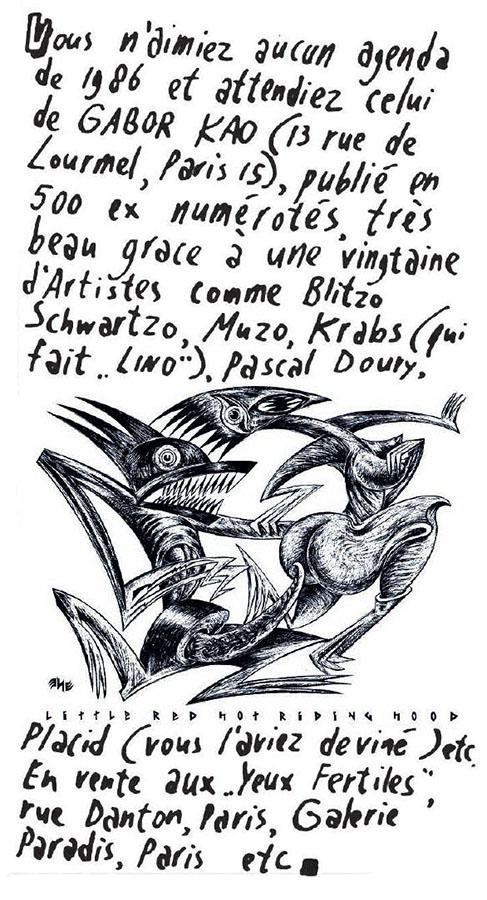 Vous n'aimiez aucun agenda
de 1986 et attendiez celui
de GABOR KAO (13 rue de
Lourmel, Paris 15), publié en
500 ex numérotés, très
beau grace à une vingtaine
d'Artistes comme Blitzo
Schwartzo, Muzo, Krabs (qui
fait „LINO"), Pascal Doury,
LITTLE RED HOT RIDING HOOD
Placid (vous l'aviez deviné) etc
En vente aux „Yeux Fertiles",
rue Danton, Paris, Galerie
Paradis, Paris etc.